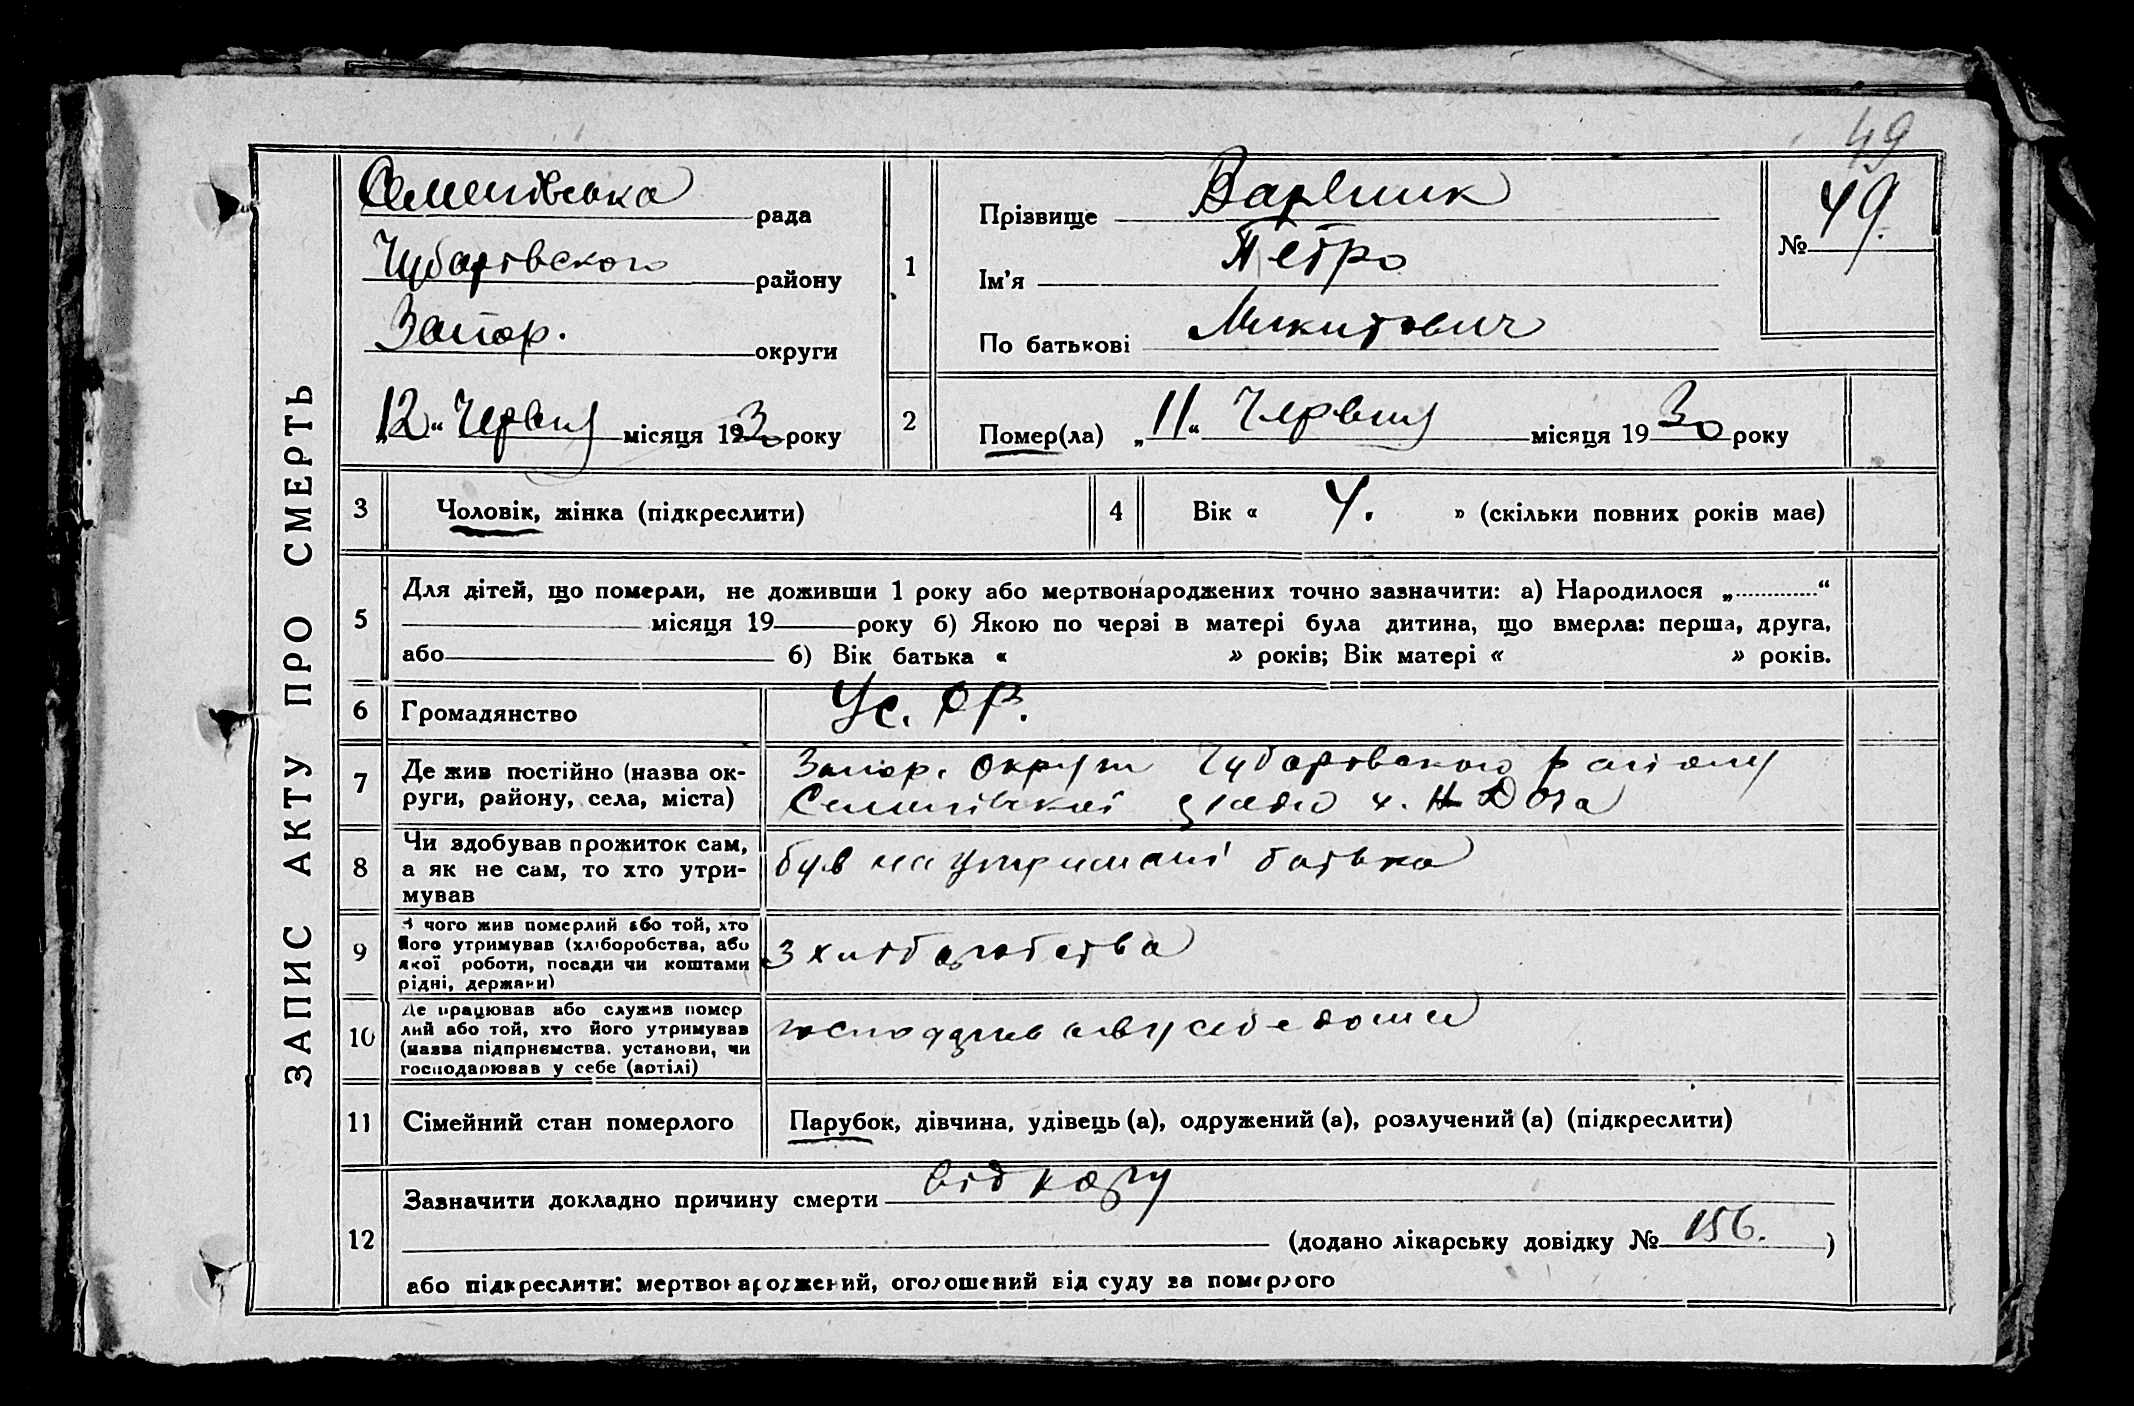 49
ЗАПИС АКТУ ПРО СМЕРТЬ
Семенівська рада
Чубарівського району
Запор. округи
"12" Червня місяця 1930 року
1
Прізвище Варениик
Ім'я Петро
По батькові Микитович
№ 49.
2
Помер(ла) „11“ Червня місяця 1930 року
3
Чоловік, жінка (підкреслити)
4
Вік « 4. » (скільки повних років має)
5
Для дітей, що померли, не доживши 1 року або мертвонароджених точно зазначити: а) Народилося „.............“
місяця 19 року б) Якою по черзі в матері була дитина, що вмерла: перша, друга,
або б) Вік батька « » років; Вік матері « » років.
6
Громадянство
Ус. СР.
7
Де жив постійно (назва ок-
руги, району, села, міста)
Запор. округи Чубарівского району
Семенівскої ради х. Дога
8
Чи здобував прожиток сам,
а як не сам, то хто утри-
мував
був на утримані батька
9
З чого жив померлий або той, хто
його утримував (хліборобства, або
якої роботи, посади чи коштами
рідні, держави)
з хліборобства
10
Де працював або служив помер
лий або той, хто його утримував
(назва підприємства, установи, чи
господарював у себе (артілі)
господарював у себе дома
11
Сімейний стан померлого
Парубок, дівчина, удівець (а), одружений (а), розлучений (а) (підкреслити)
12
Зазначити докладно причину смерти від кору
(додано лікарську довідку № 156. )
або підкреслити: мертвонароджений, оголошений від суду за померлого